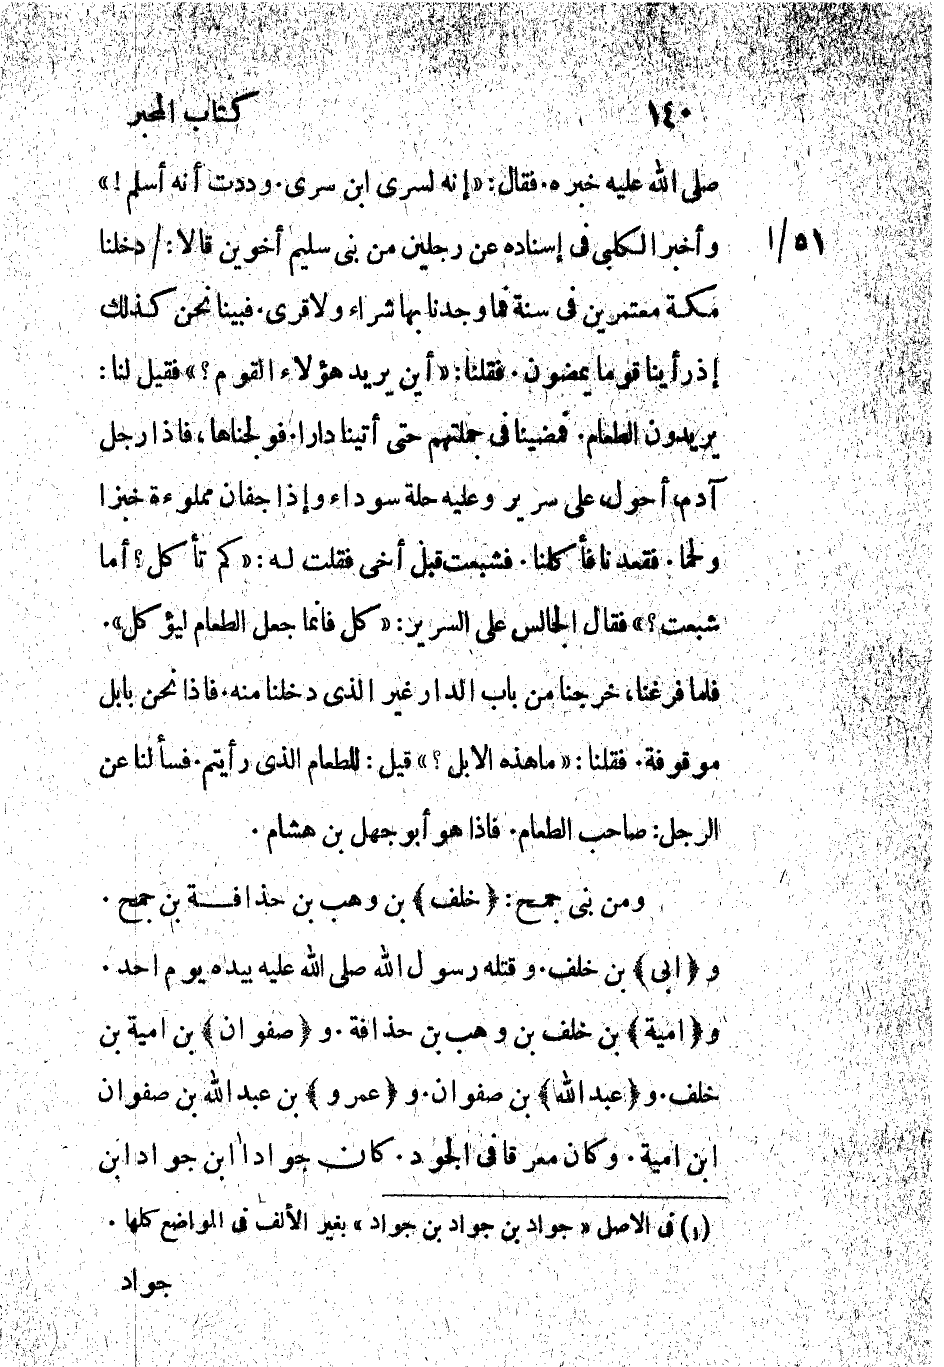 ١٤٠ كتاب المحبر
صلى الله عليه خبره. فقال: «إنه لسرى ابن سرى. وددت أنه أسلم!»
وأخبر الكلبى فى إسناده عن رجلين من بنى سليم أخوين قالا: / دخلنا ٥١/ا
مكة معتمرين فى سنة فما وجدنا بها شراء ولا قرى. فبينا نحن كذلك
إذ رأينا قوما يمضون. فقلنا: «أين يريد هؤلاء القوم؟» فقيل لنا:
يريدون الطعام. فمضينا فى جملتهم حتى أتينا دارا. فولجناها، فاذا رجل
آدم، أحول، على سرير وعليه حلة سوداء وإذا جفان مملوءة خبزا
ولحما. فقعدنا فأكلنا. فشبعت قبل أخى فقلت له: «كم تأكل؟ أما
شبعت؟» فقال الجالس على السرير: «كل فانما جعل الطعام ليؤكل».
فلما فرغنا، خرجنا من باب الدار غير الذى دخلنا منه. فاذا نحن بابل
موقوفة. فقلنا: «ما هذه الابل؟» قيل: للطعام الذى رأيتم. فسألنا عن
الرجل: صاحب الطعام. فاذا هو أبو جهل بن هشام.
ومن بنى جمح: ﴿خلف﴾ بن وهب بن حذافة بن جمح.
و﴿ابى﴾ بن خلف. وقتله رسول الله صلى الله عليه بيده يوم احد.
و﴿امية﴾ بن خلف بن وهب بن حذافة. و﴿صفوان﴾ بن امية بن
خلف. و﴿عبد الله﴾ بن صفوان. و﴿عمرو﴾ بن عبد الله بن صفوان
ابن امية. وكان معرقا فى الجود. كان جوادا١ ابن جواد ابن
(١) فى الاصل «جواد بن جواد بن جواد» بغير الألف فى المواضع كلها.
جواد